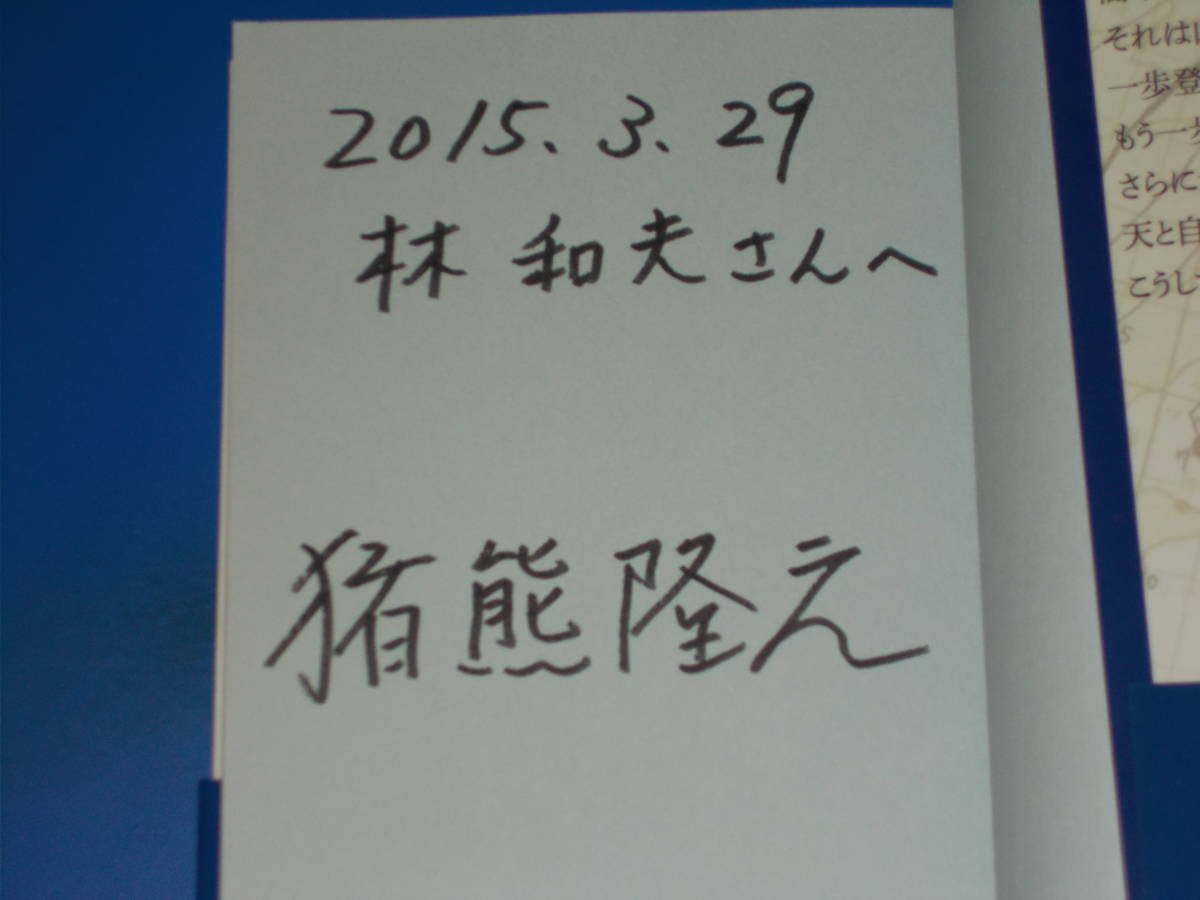 2015.3.29
林 和夫さんへ
猪熊隆之
それは
一歩登
もう一
さらに
天と自
こうし
5
7
0